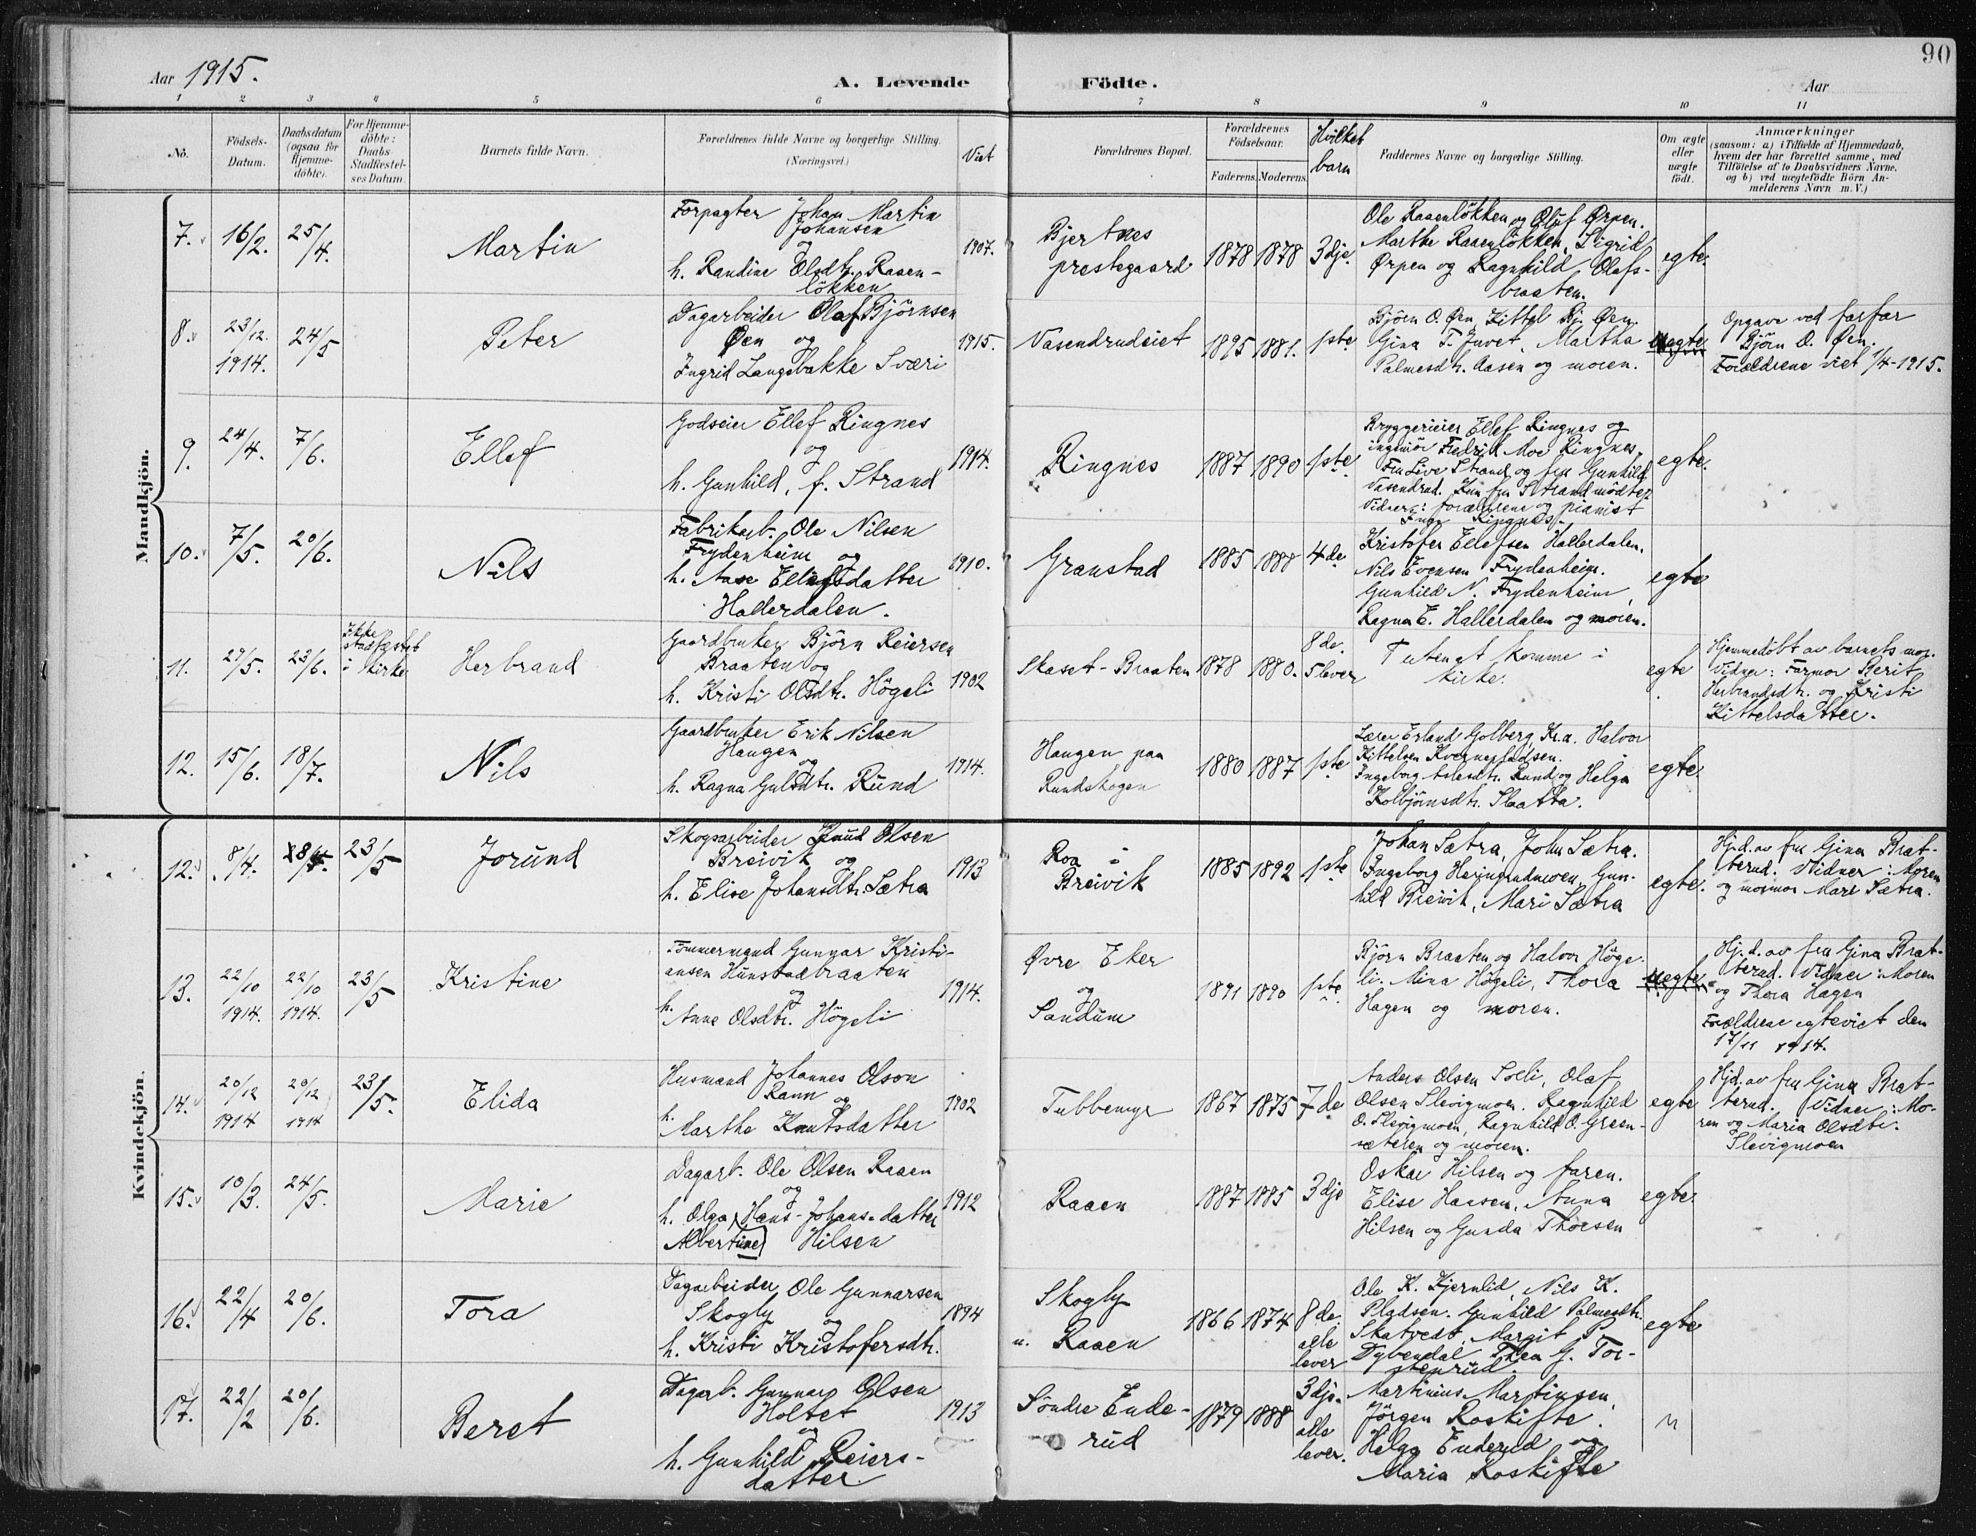 90
Aar 1915.
A. Levende Födte.
Aar
1 2 3 4 5 6 7 8 9 10 11
No.
Födsels-
Datum.
Daabsdatum
(ogsaa for
Hjemme-
döbte).
For Hjemme-
döbte:
Daabs
Stadfestel-
ses Datum.
Barnets fulde Navn.
Forældrenes fulde Navne og borgerlige Stilling.
(Næringsvei.)
Viet
Forældrenes Bopæl.
Forældrenes
Födselsaar.
Faderens. Moderens.
Hvilket
barn
Faddernes Navne og borgerlige Stilling.
Om ægte
eller
uægte
födt.
Anmærkninger
(saasom: a) i Tilfælde af Hjemmedaab,
hvem der har forrettet samme, med
Tilföielse af to Daabsvidners Navne.
og b) ved uægtefödte Börn An-
melderens Navn m. V.)
Mandkjön.
7. 16/2. 25/4.
Martin
Forpagter Johan Martin
Johansen
og
h. Randine Olsdt. Raaen-
lökken
1907.
Bjertnes
prestegaard
1878 1878 3dje.
Ole Raaenlökken og Oluf Ørpen.
Marthe Raaenlökken, Sigrid
Ørpen og Ragnhild Olafs-
braaten.
egte.
8. 23/12. 1914. 24/5
Peter
Dagarbeider Olaf Björnsen
Øen og
Ingrid Langebakke Sværi
1915.
Vasendrudeiet
1895 1881. 1ste
Bjørn O. Øen, Kittel Bj. Øen.
Gina T. Juvet, Martha
Palmesdt. Aasen og moren.
uegte
Opgave ved farfar
Björn O. Øen.
Forældrene viet 1/4-1915.
9. 24/4. 7/6.
Ellef
Godseier Ellef Ringnes
og
h. Gunhild, f. Strand
1914.
Ringnes
1887 1890 1ste
Bryggerieier Ellef Ringnes og
ingeniör Fredrik Moe Ringnes,
Fru Live Strand og fru Gunhild
Vasendrud. Kun fru Strand mödte.
Vidner: forældrene og pianist
Inga Ringnes.
egte.
10. 7/5. 20/6.
Nils
Fabrikarb. Ole Nilsen
Frydenheim og
h. Aase Ellefsdatter
Hallerdalen.
1910.
Granstad
1885 1888 4de
Kristofer Ellefsen Hallerdalen.
Nils Evensen Frydenheim.
Gunhild N. Frydenheim,
Ragna E. Hallerdalen og moren.
egte
11. 27/5. 23/6.
Ikke
stadfæstet
i kirke
Herbrand
Gaardbruker Björn Reiersen
Braaten og
h. Kristi Olsdt. Högeli
1902
Skaset-Braaten
1878 1880.
8de.
5 lever
komme i
kirke.
egte
Hjemmedöbt av barnets mor.
Vidner: Farmor Berit
Herbrandsdt. og Kristi
Kittelsdatter.
12. 15/6. 18/7.
Nils
Gaardbruker Erik Nilsen
Haugen
og
h. Ragna Gulsdt. Rund
1914.
Haugen paa
Rundskogen
1880 1887 1ste
Lærer Erland Golberg Kr.a. Halvor
Kittelsen
Ingeborg Aslesdt. Rund og Helga
Kolbjörnsdt. Slaatta.
egte.
Kvindekjön.
12. 8/4. 23/5
Jorund
Skogsarbeider Knud Olsen
Breivik og
h. Elise Johansdt. Sætra
1913
Roa i
Breivik
1885 1892 1ste
Johan Sætra, John Sætra.
Ingeborg Heringrudmoen, Gun-
hild Breivik, Mari Sætra
egte.
Hjd. av fru Gina Brat-
terud. Vidner: Moren
og mormor Mari Sætra.
13. 22/10 1914. 22/10 1914. 23/5
Kristine
Tömmermand Gunnar Kristi-
ansen Hunstadbraaten
og
h. Anne Olsdt. Högeli
1914.
Øvre Eker
og
Sandum
1891 1890 1ste
Björn Braaten og Halvor Höge-
li. Mina Högeli, Thora
Hagen og moren.
uegte
Hj.d. av fru Gina Brat-
terud. Vidner: Moren
og Thora Hagen
Forældrene egteviet den
17/11 1914.
14. 20/12 1914 20/12 1914 23/5.
Elida
Husmand Johannes Olson
Rann og
h. Marthe Knutsdatter
1902
Tubbemyr
1867 1875 7de
Anders Olsen Soli, Olaf
Olsen Slevigmoen. Ragnhild
O. Slevigmoen, Ragnhild O. Green-
sæteren og moren.
egte
Hjd. av fru Gina Brat-
terud. Vidner: Mo-
ren og Maria Olsdt.
Slevigmoen
15. 10/3. 24/5.
Marie
Dagarb. Ole Olsen Raaen
og
h. Olga Hans-Johans-datter
Albertine Hilsen
1912
Raaen
1887 1885 3dje
Oskar Hilsen og faren.
Elise Hansen, Anna
Hilsen og Gunda Thoresen
egte
16. 22/4 20/6.
Tora
Dagarbeider Ole Gunnarsen
Skogly og
h. Kristi Kristofersdt.
1894
Skogly
u. Raaen
1866 1874
8de.
alle
lever
Ole K. Kjernlid, Nils K.
Pladsen. Gunhild Palmesdt.
Skatvedt, Margit P.
Dybendal Thea G. Tor-
stenrud.
egte
17. 22/2 20/6.
Beret
Dagarb. Gunnar Olsen
Holtet
og
h. Gunhild Reiers-
datter.
1913
Söndre Ende-
rud
1879 1888
3dje.
alle
lever.
Martinius Martinsen,
Jörgen Roskifte.
Helga Enderud og
Maria Roskifte
"